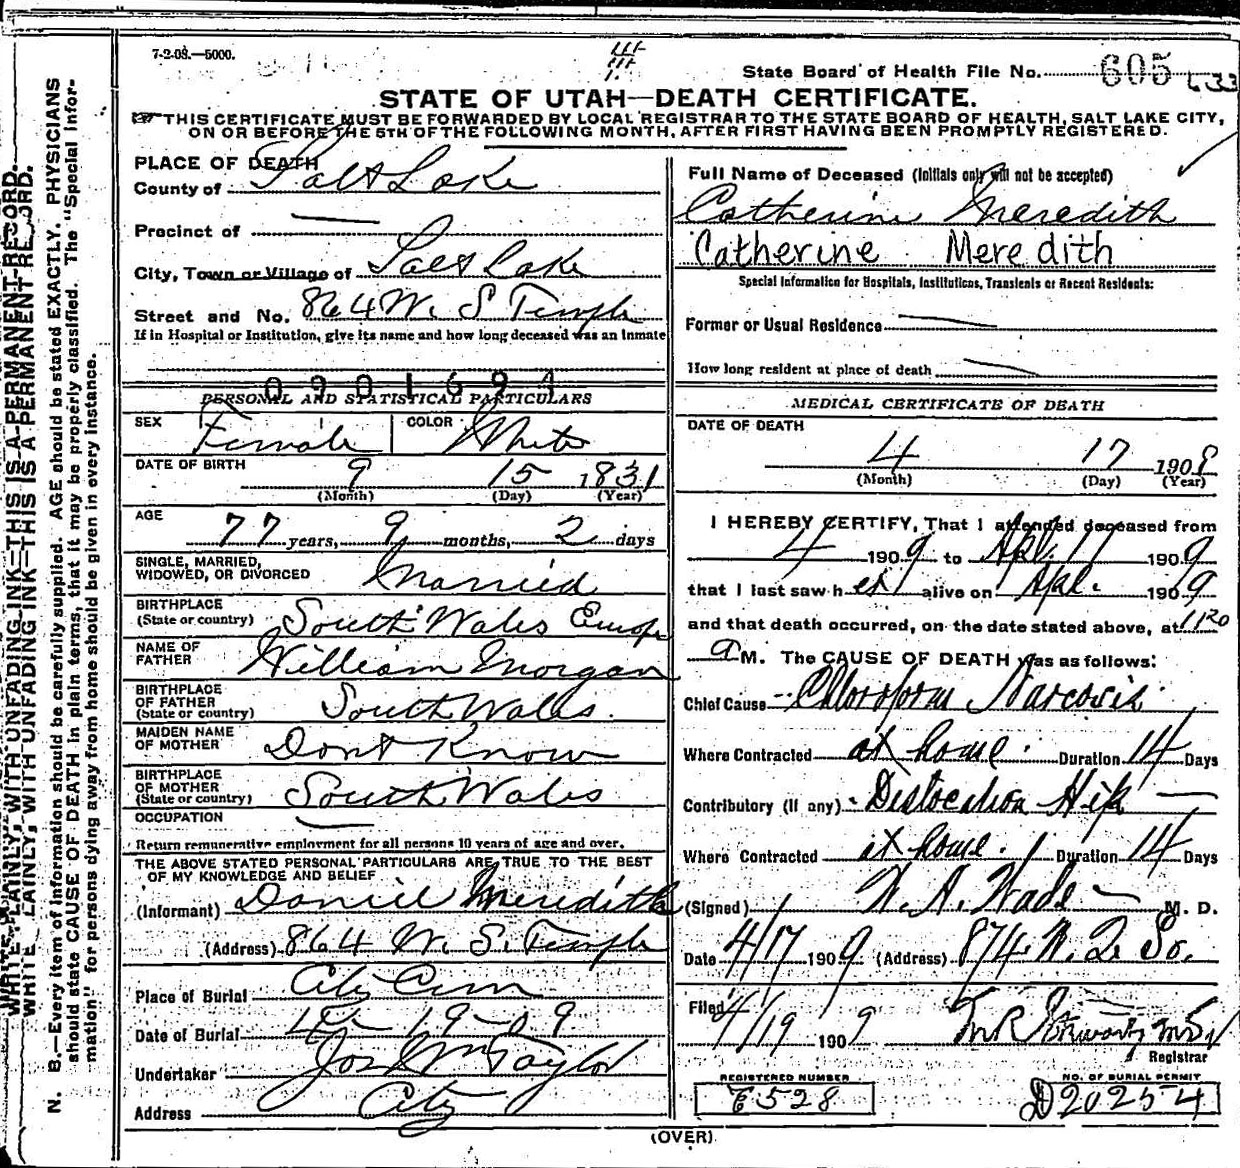 7-2-08.—5000.
State Board of Health File No. 605
STATE OF UTAH—DEATH CERTIFICATE.
THIS CERTIFICATE MUST BE FORWARDED BY LOCAL REGISTRAR TO THE STATE BOARD OF HEALTH, SALT LAKE CITY,
ON OR BEFORE THE 5TH OF THE FOLLOWING MONTH, AFTER FIRST HAVING BEEN PROMPTLY REGISTERED.
WRITE PLAINLY, WITH UNFADING INK—THIS IS A PERMANENT RECORD.
N. B.—Every item of information should be carefully supplied. AGE should be stated EXACTLY. PHYSICIANS
should state CAUSE OF DEATH in plain terms, that it may be properly classified. The "Special Infor-
mation" for persons dying away from home should be given in every instance.
PLACE OF DEATH
County of Salt Lake
Precinct of —
City, Town or Village of Salt Lake
Street and No. 864 W. S Temple
If in Hospital or Institution, give its name and how long deceased was an Inmate
0901691
PERSONAL AND STATISTICAL PARTICULARS
SEX Female COLOR White
DATE OF BIRTH 9 15 1831
(Month) (Day) (Year)
AGE 77 years, 9 months, 2 days
SINGLE, MARRIED,
WIDOWED, OR DIVORCED Married
BIRTHPLACE
(State or country) South Wales Europe
NAME OF
FATHER William Morgan
BIRTHPLACE
OF FATHER
(State or country) South Wales
MAIDEN NAME
OF MOTHER Dont Know
BIRTHPLACE
OF MOTHER
(State or country) South Wales
OCCUPATION —
Return remunerative employment for all persons 10 years of age and over.
THE ABOVE STATED PERSONAL PARTICULARS ARE TRUE TO THE BEST
OF MY KNOWLEDGE AND BELIEF
(Informant) Daniel Meredith
(Address) 864 W. S. Temple
Place of Burial City Cem
Date of Burial 4-19-09
Undertaker Jos Wm Taylor
Address City
Full Name of Deceased (Initials only will not be accepted)
Catherine Meredith
Catherine Meredith
Special Information for Hospitals, Institutions, Transients or Recent Residents:
Former or Usual Residence —
How long resident at place of death —
MEDICAL CERTIFICATE OF DEATH
DATE OF DEATH
4 17 1909
(Month) (Day) (Year)
I HEREBY CERTIFY, That I attended deceased from
4 1909 to Apl. 17 1909
that I last saw her alive on Apl. 1909
and that death occurred, on the date stated above, at 1120
a M. The CAUSE OF DEATH was as follows:
Chief Cause Chloroform Narcosis
Where Contracted at home. Duration 14 Days
Contributory (if any) Dislocation Hip —
Where Contracted at home. Duration 14 Days
(Signed) W. A. Wade M. D.
Date 4/17 1909 (Address) 874 W. 2 So.
Filed 4/19 1909
Registrar
REGISTERED NUMBER
E528
NO. OF BURIAL PERMIT
D20254
(OVER)